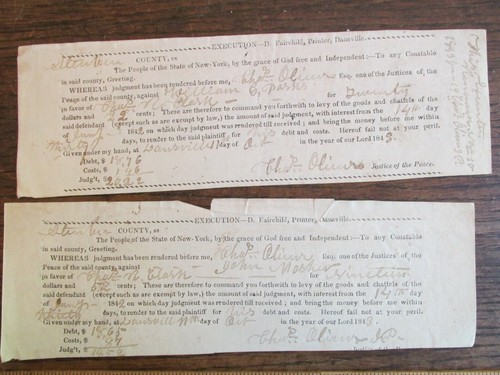 EXECUTION—D. Fairchild, Printer, Dansville.
Steuben COUNTY, ss
The People of the State of New-York, by the grace of God free and Independent:—To any Constable
in said county, Greeting.
WHEREAS judgment has been rendered before me, Chas. Oliver Esq. one of the Justices of the
Peace of the said county, against William C. Parks
in favor of Clark for Twenty
dollars and 22 cents; These are therefore to command you forthwith to levy of the goods and chattels of the
said defendant (except such as are exempt by law,) the amount of said judgment, with interest from the 14th day
of 1842 on which day judgment was rendered till received; and bring the money before me within
Ninety days, to render to the said plaintiff, for his debt and costs. Hereof fail not at your peril.
Given under my hand, at Dansville day of Oct in the year of our Lord 1843.
Debt, $ 18,76
Costs, $ 1,46 Chas. Oliver Justice of the Peace.
Judg't, $
EXECUTION—D. Fairchild, Printer, Dansville.
Steuben COUNTY, ss
The People of the State of New-York, by the grace of God free and Independent:—To any Constable
in said county, Greeting.
WHEREAS judgment has been rendered before me, Chas. Oliver Esq. one of the Justices of the
Peace of the said county, against John
in favor of Chas. H. Clark for Nineteen
dollars and 52 cents; These are therefore to command you forthwith to levy of the goods and chattels of the
said defendant (except such as are exempt by law,) the amount of said judgment, with interest from the 14th day
of 1842 on which day judgment was rendered till received; and bring the money before me within
Ninety days, to render to the said plaintiff, for his debt and costs. Hereof fail not at your peril.
Given under my hand, at Dansvill 11th day of Oct in the year of our Lord 1843.
Debt, $ 18,65
Costs, $ Chas. Oliver J.P.
Judg't, $ Justice of the Peace.